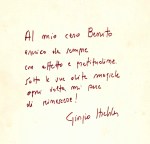 Al mio caro Benito
amico da sempre
con affetto e gratitudine.
Sotto le sue dita magiche
ogni volta mi pare
di rinascere!
Giorgio